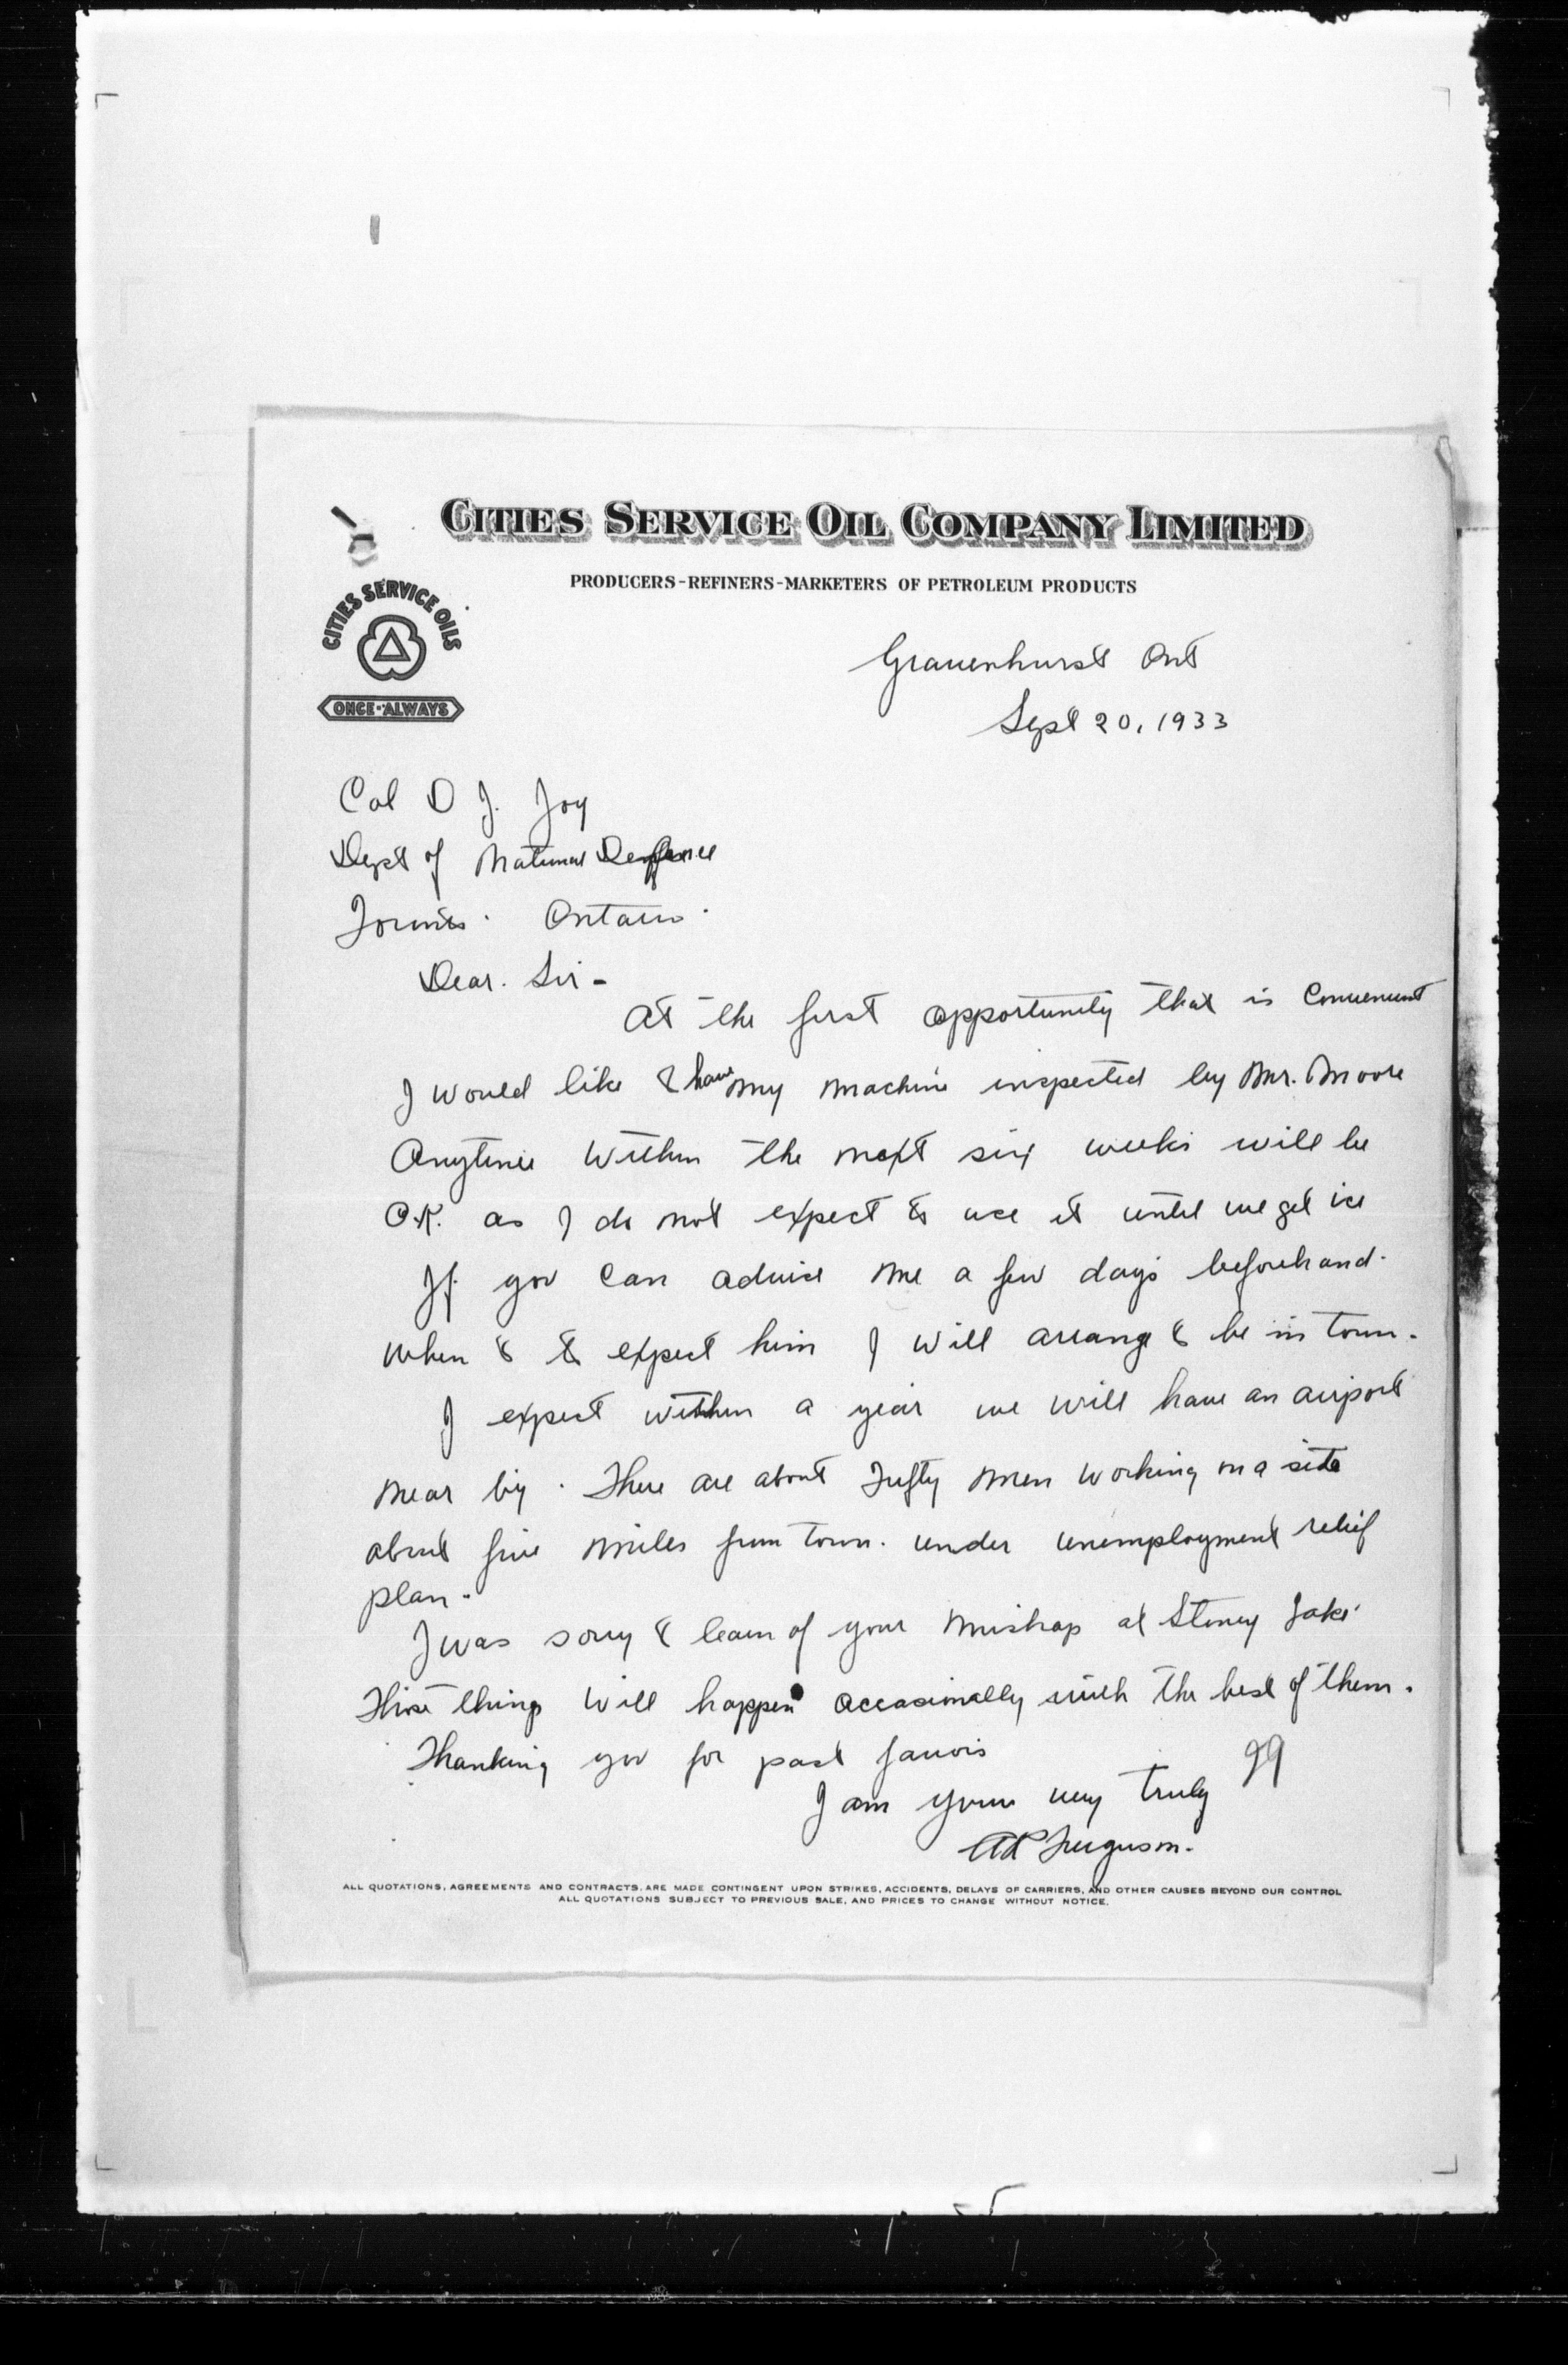 CITIES SERVICE OIL COMPANY LIMITED
PRODUCERS-REFINERS-MARKETERS OF PETROLEUM PRODUCTS
CITIES SERVICE OILS
ONCE-ALWAYS
Gravenhurst Ont
Sept 20, 1933
Col D J. Joy
Dept of National Defence
Ontario.
Dear. Sir -
At the first opportunity that is Convenient
I would like to have my machine inspected by Mr. Moore
Anytime within the next six weeks will be
O.K. as I do not expect to use it until we get ice
If you can advise me a few days beforehand.
when to to expect him I will arrange to be in town.
I expect within a year we will have an airport
near by. There are about fifty men working on a site
about five miles from town. under unemployment relief
plan.
I was sorry to learn of your mishap at Stoney Lake.
Those things will happen occasionally with the best of them.
Thanking you for past favors
I am yours very truly
Ferguson.
ALL QUOTATIONS, AGREEMENTS AND CONTRACTS, ARE MADE CONTINGENT UPON STRIKES, ACCIDENTS, DELAYS OF CARRIERS, AND OTHER CAUSES BEYOND OUR CONTROL
ALL QUOTATIONS SUBJECT TO PREVIOUS SALE, AND PRICES TO CHANGE WITHOUT NOTICE.